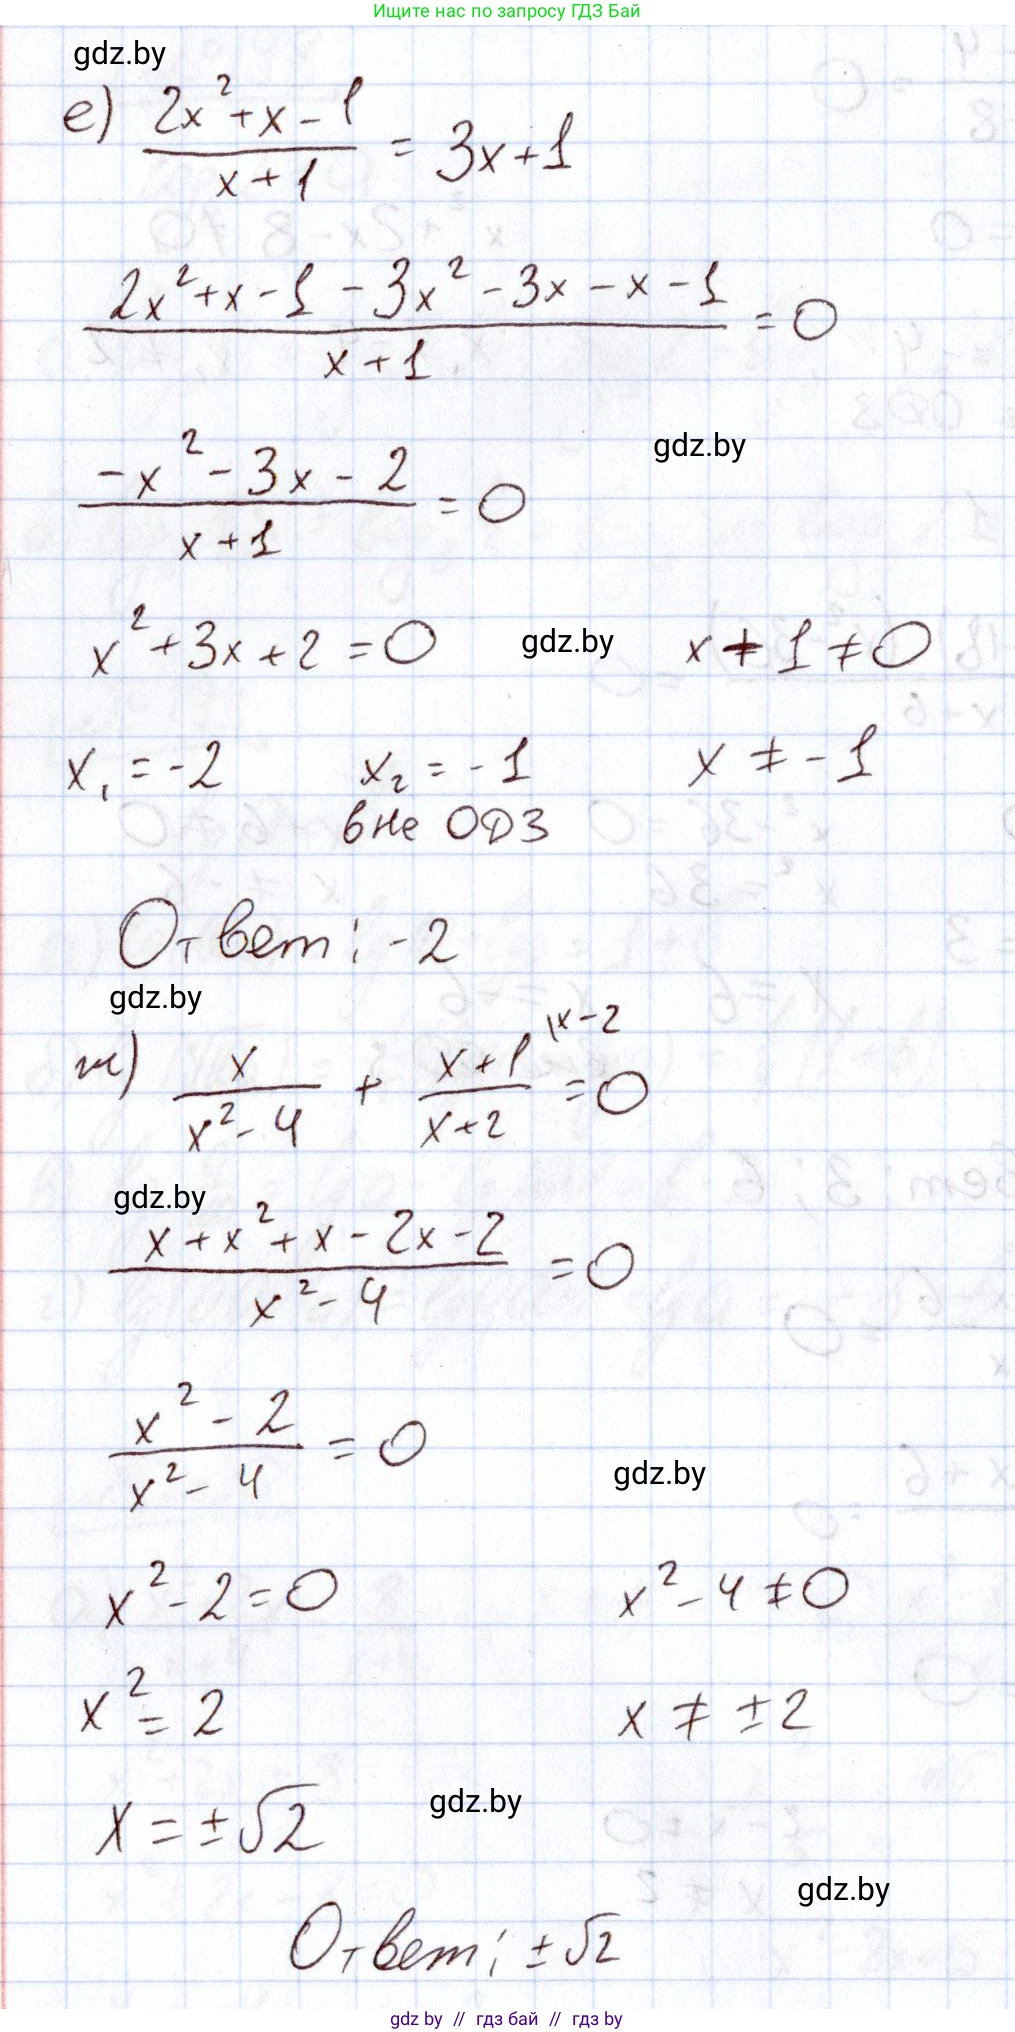 Ищите нас по запросу ГДЗ Бай
gdz.by
е) (2x²+x-1)/(x+1) = 3x+1
(2x²+x-1-3x²-3x-x-1)/(x+1) = 0
gdz.by
(-x²-3x-2)/(x+1) = 0
x²+3x+2=0 gdz.by x+1≠0
x₁=-2 x₂=-1 x≠-1
вне ОДЗ
Ответ: -2
gdz.by
ж) x/(x²-4) + (x+1)/(x+2) \x-2 = 0
gdz.by
(x+x²+x-2x-2)/(x²-4) = 0
(x²-2)/(x²-4) = 0
gdz.by
x²-2=0 x²-4≠0
x²=2 x≠±2
x=±√2 gdz.by
gdz.by
Ответ: ±√2
gdz.by // гдз бай // гдз by